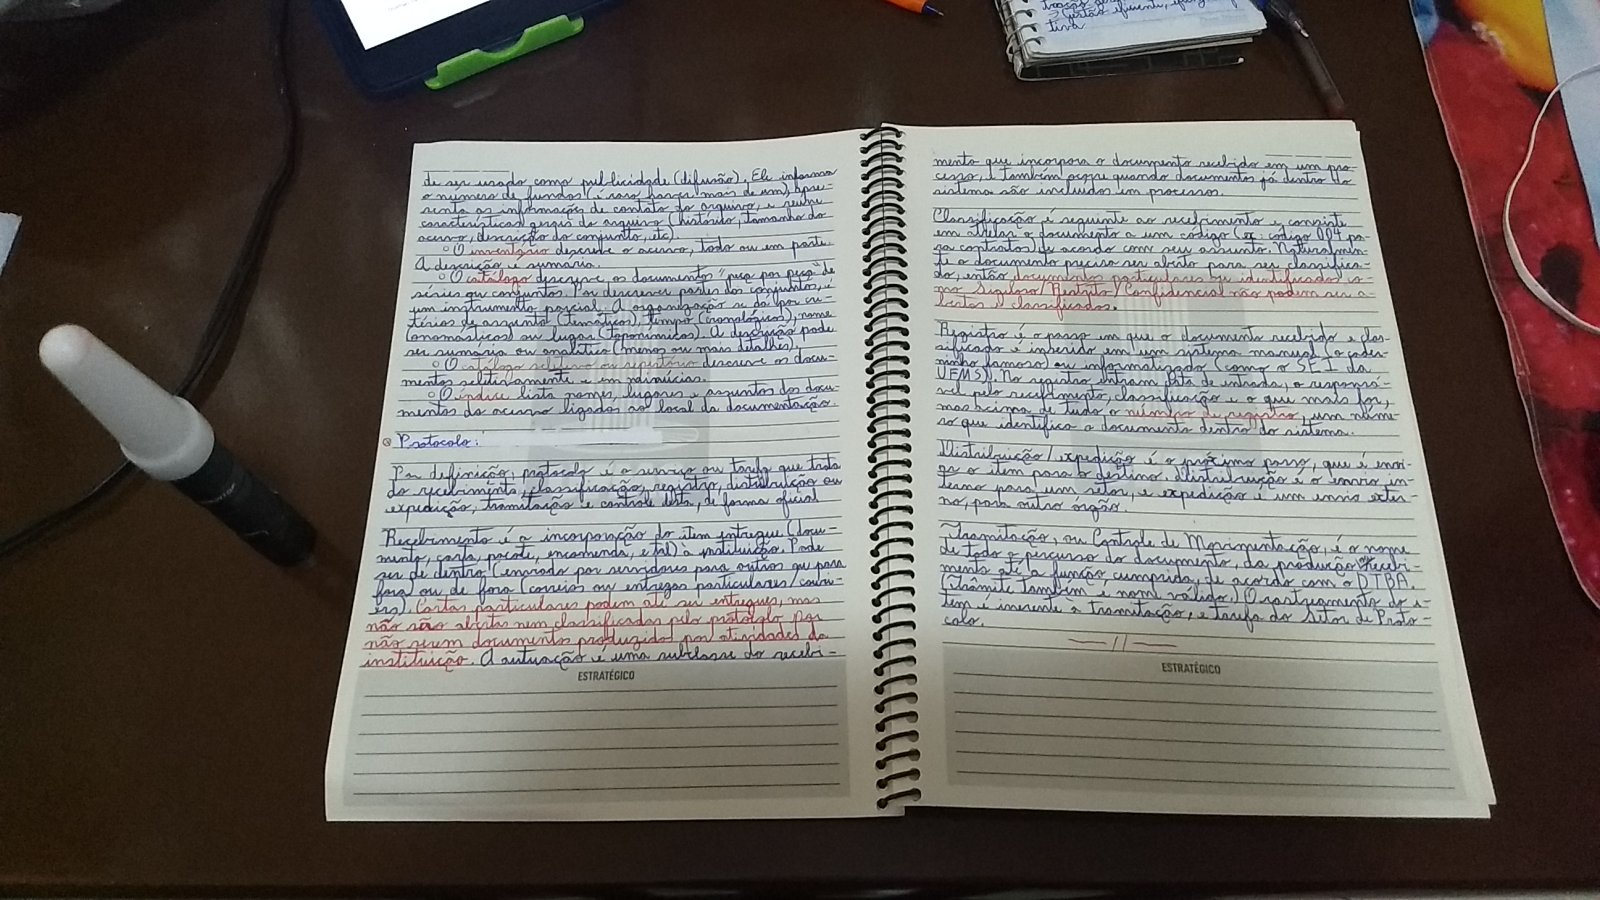 de ser usado como publicidade (difusão). Ele informa
o número de fundos (é raro haver mais de um), apre-
senta as informações de contato do arquivo, e reúne
características gerais do arquivo (histórico, tamanho do
acervo, descrição do conjunto, etc)
O inventário descreve o acervo, todo ou em parte.
A descrição é sumária.
O catálogo descreve os documentos "peça por peça" de
séries ou conjuntos. Por descrever partes dos conjuntos, é
um instrumento parcial. A organização se dá por cri-
térios de assunto (temáticos), tempo (cronológicos), nome
(onomásticos) ou lugar (toponímicos). A descrição pode
ser sumária ou analítica (menos ou mais detalhes).
O catálogo seletivo ou repertório descreve os docu-
mentos seletivamente e em minúcias.
O índice lista nomes, lugares e assuntos dos docu-
mentos do acervo ligados ao local da documentação.
Protocolo:
Por definição, protocolo é o serviço ou tarefa que trata
do recebimento, classificação, registro, distribuição ou
expedição, tramitação e controle desta, de forma oficial
Recebimento é a incorporação do item entregue (docu-
mento, carta, pacote, encomenda, e tal) à instituição. Pode
ser de dentro (enviado por servidores para outros ou para
fora) ou de fora (correios ou entregas particulares/couri-
ers). Cartas particulares podem até ser entregues, mas
não são abertas nem classificadas pelo protocolo por
não serem documentos produzidos por atividades da
instituição. A autuação é uma subclasse do recebi-
ESTRATÉGICO
mento que incorpora o documento recebido em um pro-
cesso, e também ocorre quando documentos já dentro do
sistema são incluídos em processos.
Classificação é seguinte ao recebimento e consiste
em atrelar o documento a um código (ex: código 004 pa-
ra contratos) de acordo com seu assunto. Naturalmen-
te o documento precisa ser aberto para ser classifica-
do, então documentos particulares ou identificados co-
mo Sigiloso/Restrito/Confidencial não podem ser a-
bertos e classificados.
Registro é o passo em que o documento recebido e clas-
sificado é inserido em um sistema manual (o cader-
ninho famoso) ou informatizado (como o SEI da
UFMS). No registro entram data de entrada, o responsá-
vel pelo recebimento, classificação e o que mais for,
mas acima de tudo o número de registro, um núme-
ro que identifica o documento dentro do sistema.
Distribuição/expedição é o próximo passo, que é envi-
ar o item para o destino. Distribuição é o envio in-
terno para um setor, e expedição é um envio exter-
no, para outro órgão.
Tramitação, ou Controle de Movimentação, é o nome
de todo o percurso do documento, da produção ou recebi-
mento até a função cumprida, de acordo com o DTBA.
(trâmite também é nome válido.) O rastreamento do i-
tem é inerente à tramitação, e tarefa do Setor de Proto-
colo.
ESTRATÉGICO